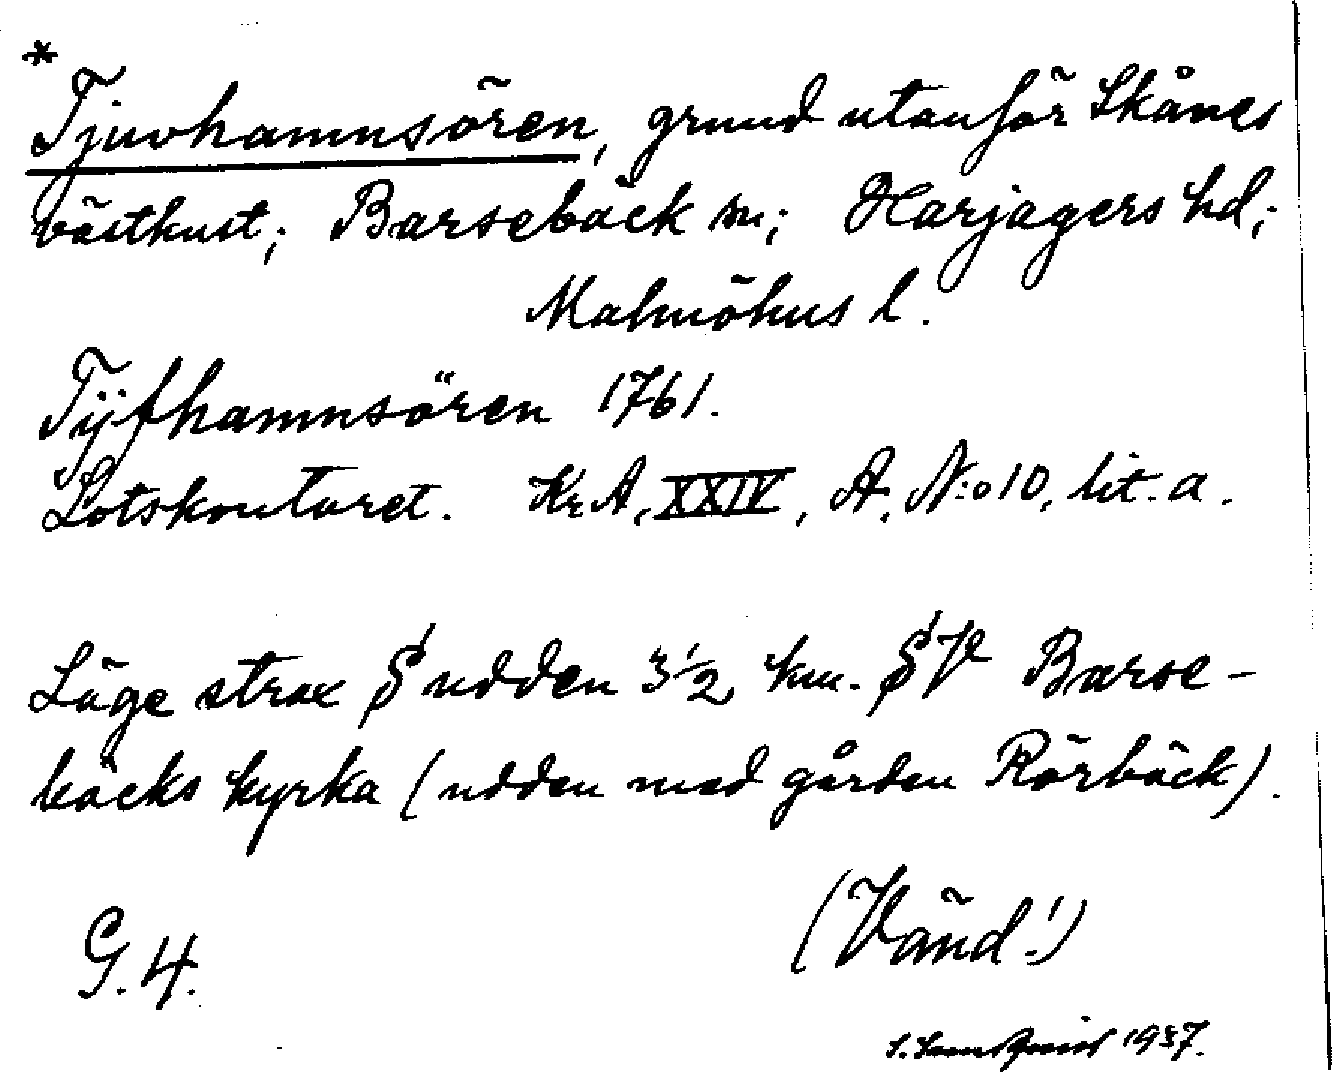 *
Tjuvhamnsören, grund utanför Skånes
västkust; Barsebäck sn; Harjagers hd;
Malmöhus l.
Tÿfhamnsören 1761.
Lotskontoret. Kr. A. XXIV, A. N:o 10, lit. a.
Läge strax S udden 3½ km. SV Barse-
bäcks kyrka (udden med gården Rörbäck).
(Vänd!)
G. 4.
1937.